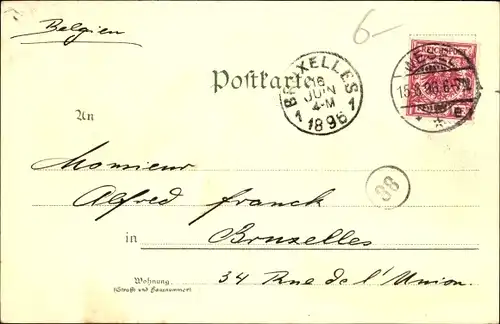 Belgien
6-
REICHSPOST
WESEL
Postkarte
BRUXELLES
16
JUIN
4-M
1 1
1896
An
Monsieur
Alfred franck
38
in Bruxelles
Wohnung
(Straße und Hausnummer)
34 Rue de l'Union.